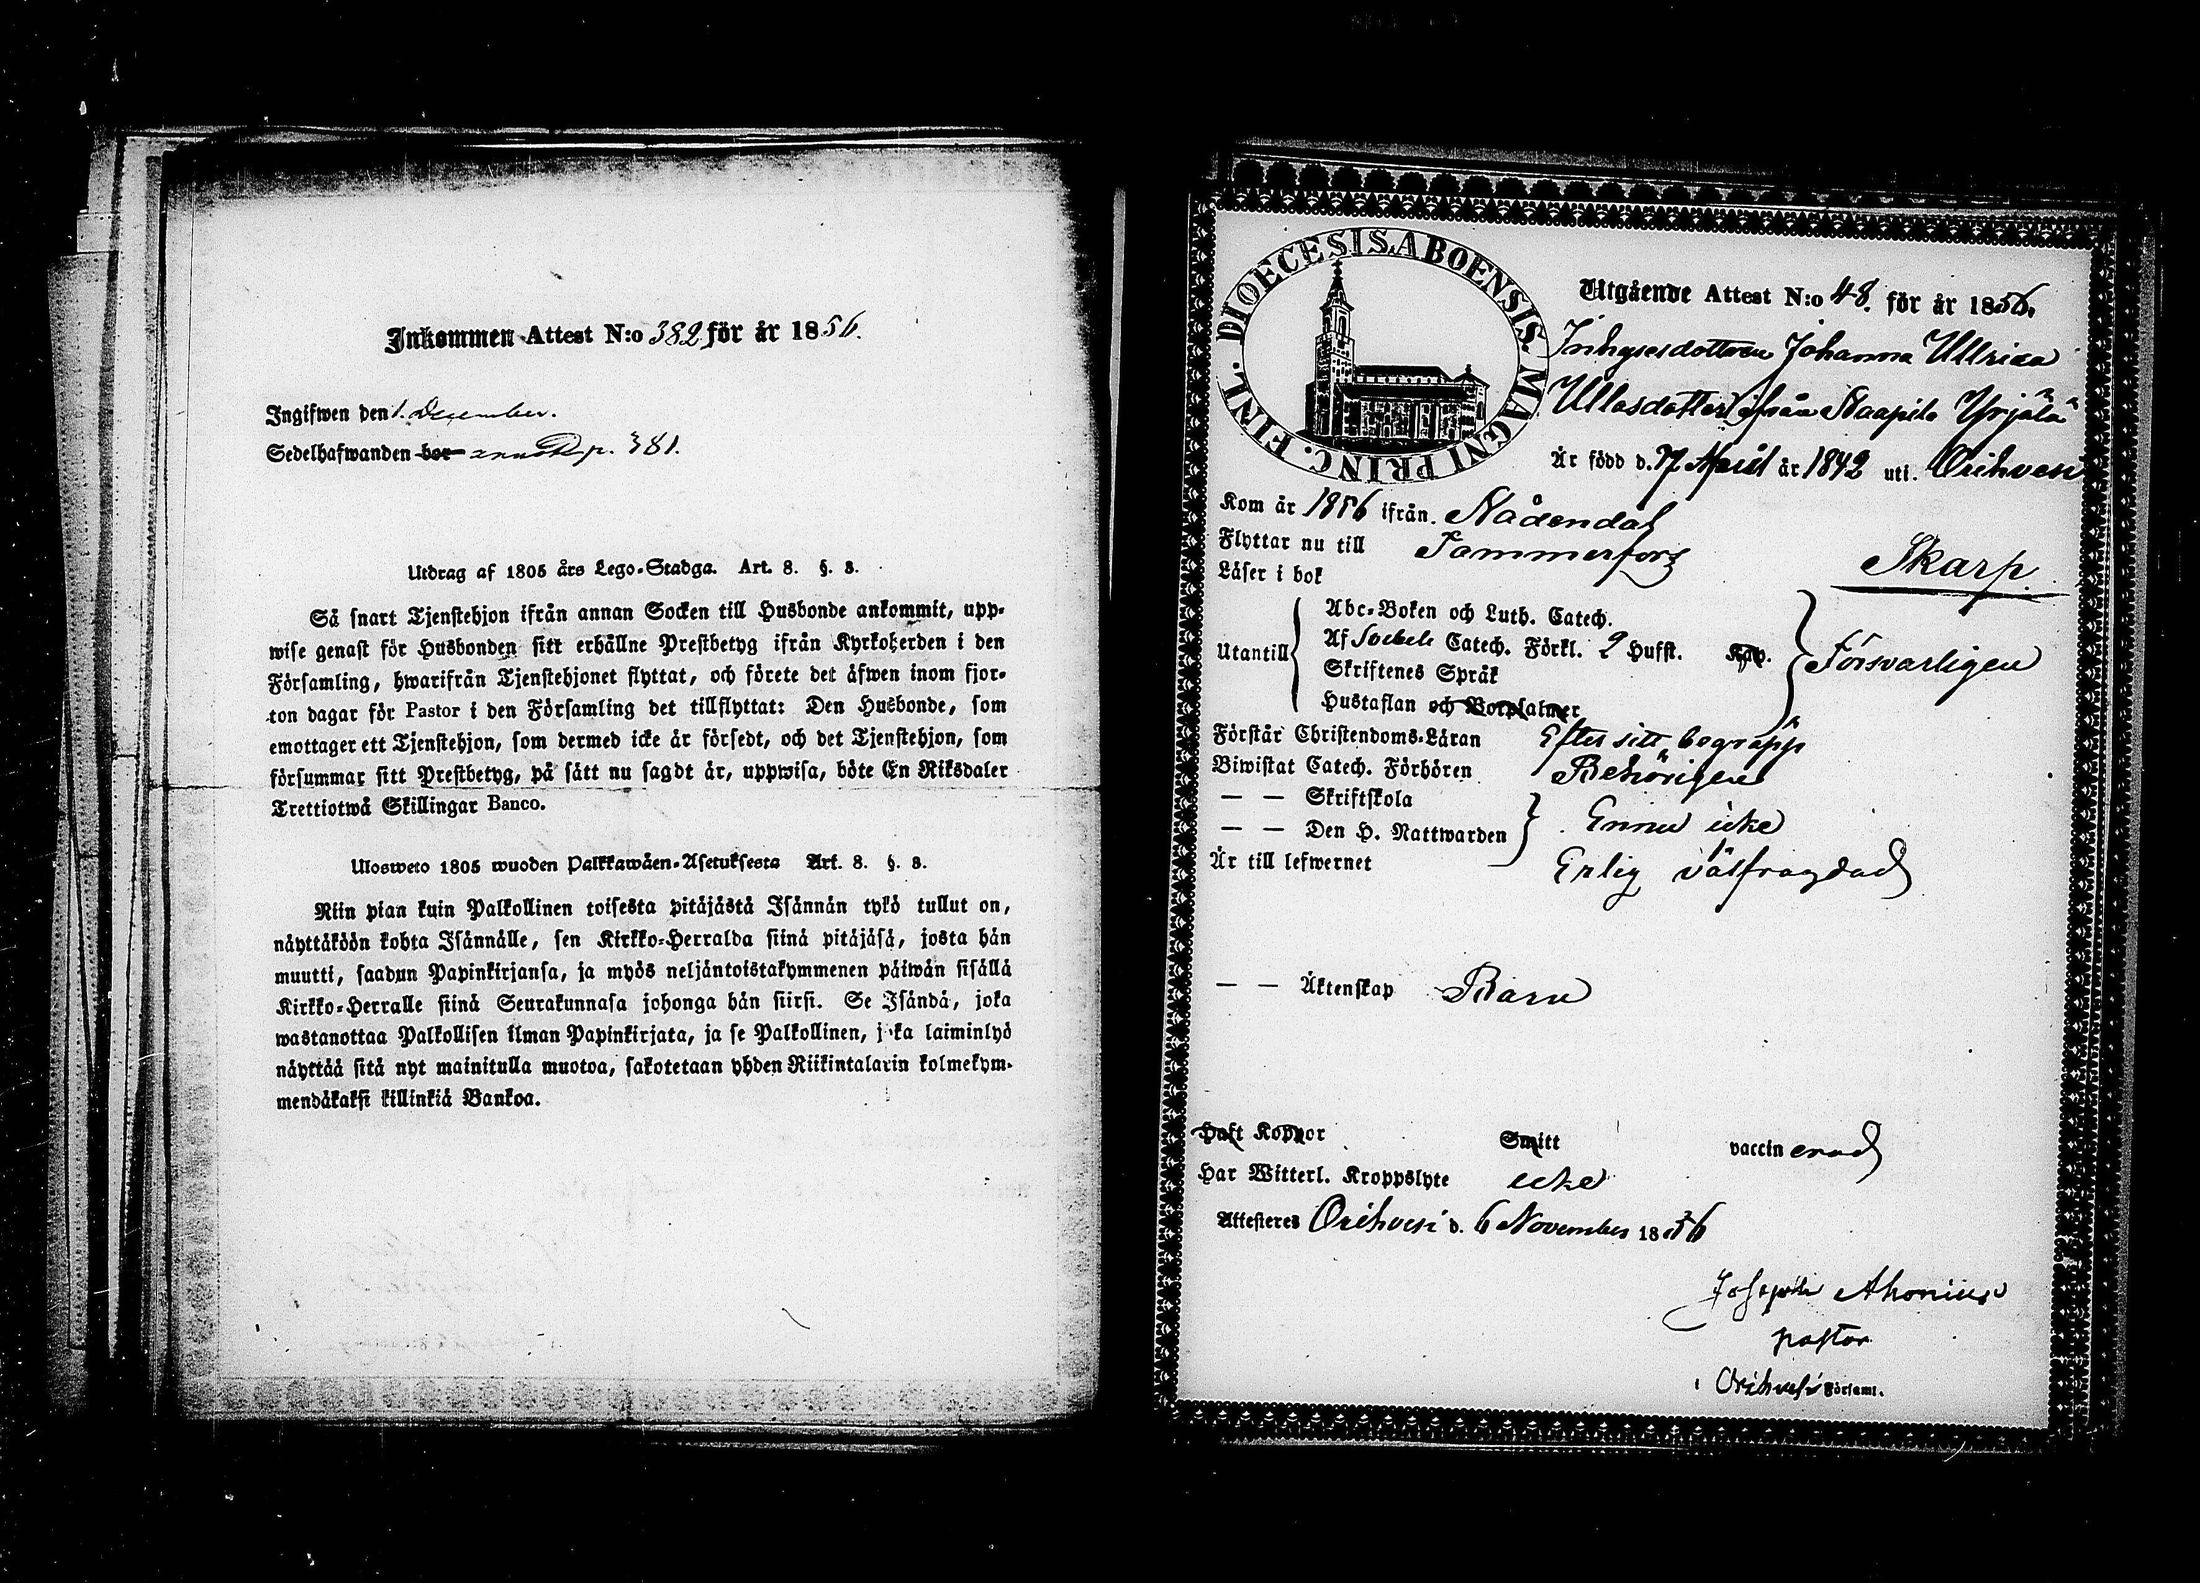 Inkommen Attest N:o 382 för år 1856.
Ingifwen den 1. December.
Sedelhafwanden bor p. 381.
Utdrag af 1805 års Lego-Stadga. Art. 8. §. 8.
Så snart Tjenstehjon ifrån annan Socken till Husbonde ankommit, upp-
wise genast för Husbonden sitt erhållne Prestbetyg ifrån Kyrkoherden i den
Församling, hwarifrån Tjenstehjonet flyttat, och förete det äfwen inom fjor-
ton dagar för Pastor i den Församling det tillflyttat: Den Husbonde, som
emottager ett Tjenstehjon, som dermed icke är försedt, och det Tjenstehjon, som
försummar sitt Prestbetyg, på sätt nu sagdt är, uppwisa, böte En Riksdaler
Trettiotwå Skillingar Banco.
Ulosweto 1805 wuoden Palkkawäen-Asetuksesta Art. 8. §. 8.
Niin pian kuin Palkollinen toisesta pitäjästä Isännän tykö tullut on,
näyttäköön kohta Isännälle, sen Kirkko-Herralda siinä pitäjäsä, josta hän
muutti, saadun Papinkirjansa, ja myös neljäntoistakymmenen päiwän sisällä
Kirkko-Herralle siinä Seurakunnasa johonga hän siirsi. Se Isändä, joka
wastanottaa Palkollisen ilman Papinkirjata, ja se Palkollinen, joka laiminlyö
näyttää sitä nyt mainitulla muotoa, sakotetaan yhden Riikintalarin kolmekym-
mendäkaksi killinkiä Bankoa.
FINL. DIOECESIS ABOENSIS. MAGNI PRINC.
Utgående Attest N:o 48. för år 1856.
Inhysesdottren Johanna Ullrica
Ullasdotter ifrån Yrjälä
Är född d. 7 April år 1842 uti. Orihvesi
Kom år 1856 ifrån. Nådendal
Flyttar nu till Tammerfors
Skarp.
Läser i bok
Utantill
Abc-Boken och Luth. Catech.
Af Catech. Förkl. 2 Hufst. Kap.
Skriftenes Språk
Hustaflan och Botpsalmer
Försvarligen
Förstår Christendoms-Läran Efter sitt begrepp
Biwistat Catech. Förhören Behörigen
— — Skriftskola
— — Den H. Nattwarden
Ennu icke
Är till lefwernet Erlig välfrägdad
— — Äktenskap Barn
Haft Koppor Smitt vaccinerad
Har Witterl. Kroppslyte icke
Attesteres Orihvesi d. 6 November 1856
Joseph Ahonius
pastor
i Orihvesi Församl.